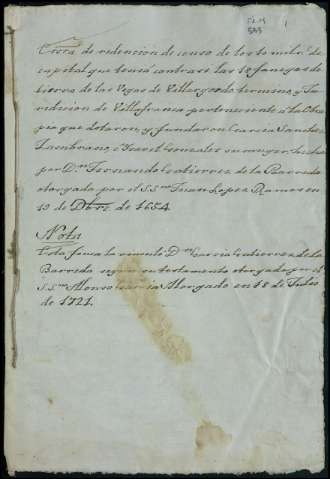 Escra de redencion de censo de los to mil rs. de
capital que tenia contra si las 10 fanegas de
tierra de las Vegas de Villargordo termino, y Ju
risdicion de Villafranca perteneciente a la Obra
pia que dotaron, y fundaron Garcia Sanchez
Zambrano, e Ysavel Gonzalez su muger hecha
por Dn. Fernando Gutierrez de la Barreda
otorgada por el SSno. Juan Lopez Ramos en
19 de Dbre. de 1654.
Nota
Esta finca la vinculó Dn. Garcia Gutierrez de la
Barreda segun su testamento otorgado por el
SSno. Alonso Garcia Morgado en 18 de Julio
de 1721.